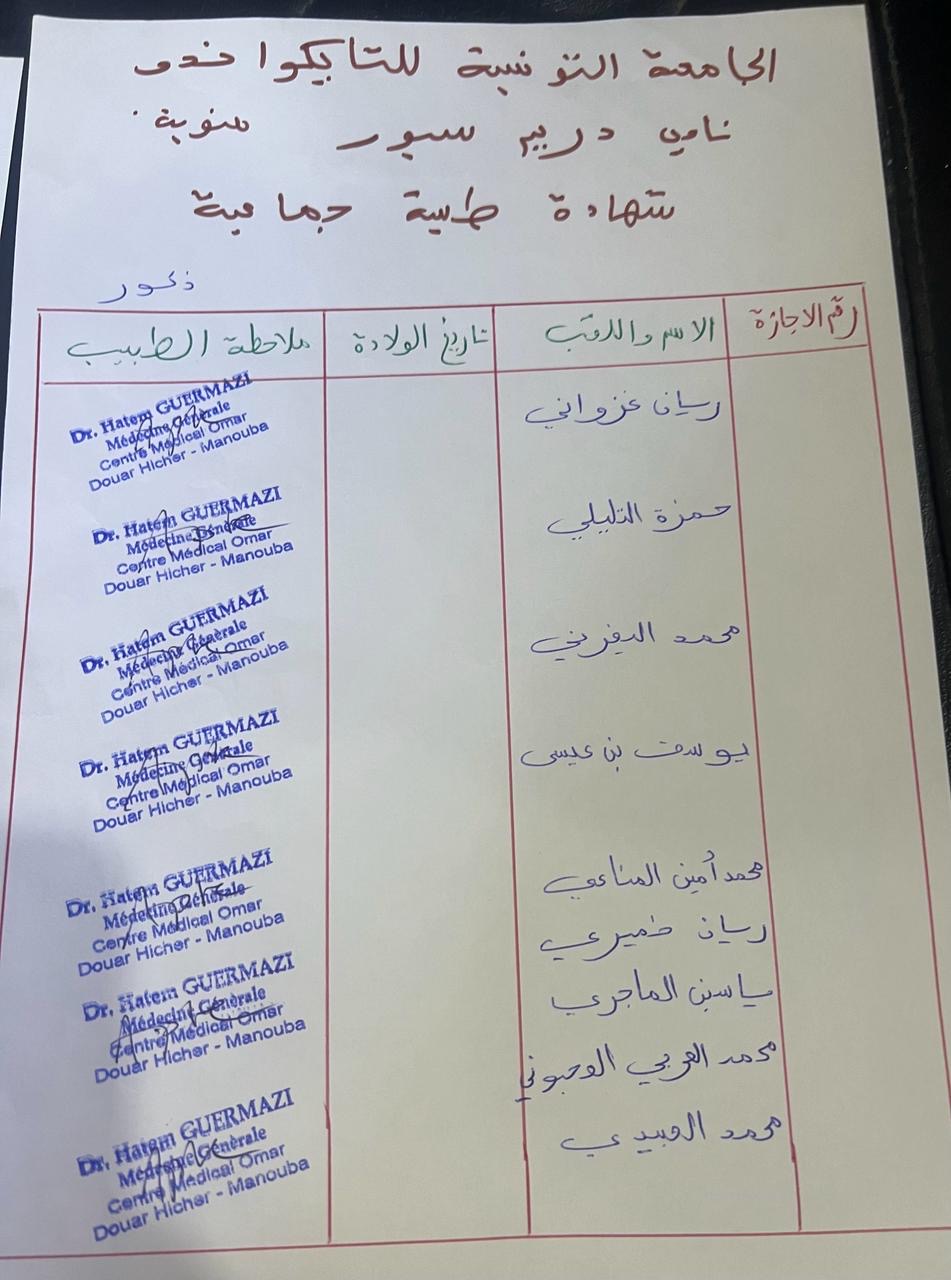 الجامعة التونسية للتايكوا ندو
نادي دريم سبور منوبة
شهادة طبية جماعية
ذكور
رقم الاجازة الاسم واللقب تاريخ الولادة ملاحظة الطبيب
ريان غزواني
Dr. Hatem GUERMAZI
Médecine Générale
Centre Médical Omar
Douar Hicher - Manouba
حمزة التليلي
Dr. Hatem GUERMAZI
Médecine Générale
Centre Médical Omar
Douar Hicher - Manouba
محمد اليفرني
Dr. Hatem GUERMAZI
Médecine Générale
Centre Médical Omar
Douar Hicher - Manouba
يوسف بن عيسى
Dr. Hatem GUERMAZI
Médecine Générale
Centre Médical Omar
Douar Hicher - Manouba
محمد أمين المناعي
Dr. Hatem GUERMAZI
Médecine Générale
Centre Médical Omar
Douar Hicher - Manouba
ريان خميري
ياسين الماجري
Dr. Hatem GUERMAZI
Médecine Générale
Centre Médical Omar
Douar Hicher - Manouba
محمد العربي
محمد العبيدي
Dr. Hatem GUERMAZI
Médecine Générale
Centre Médical Omar
Douar Hicher - Manouba